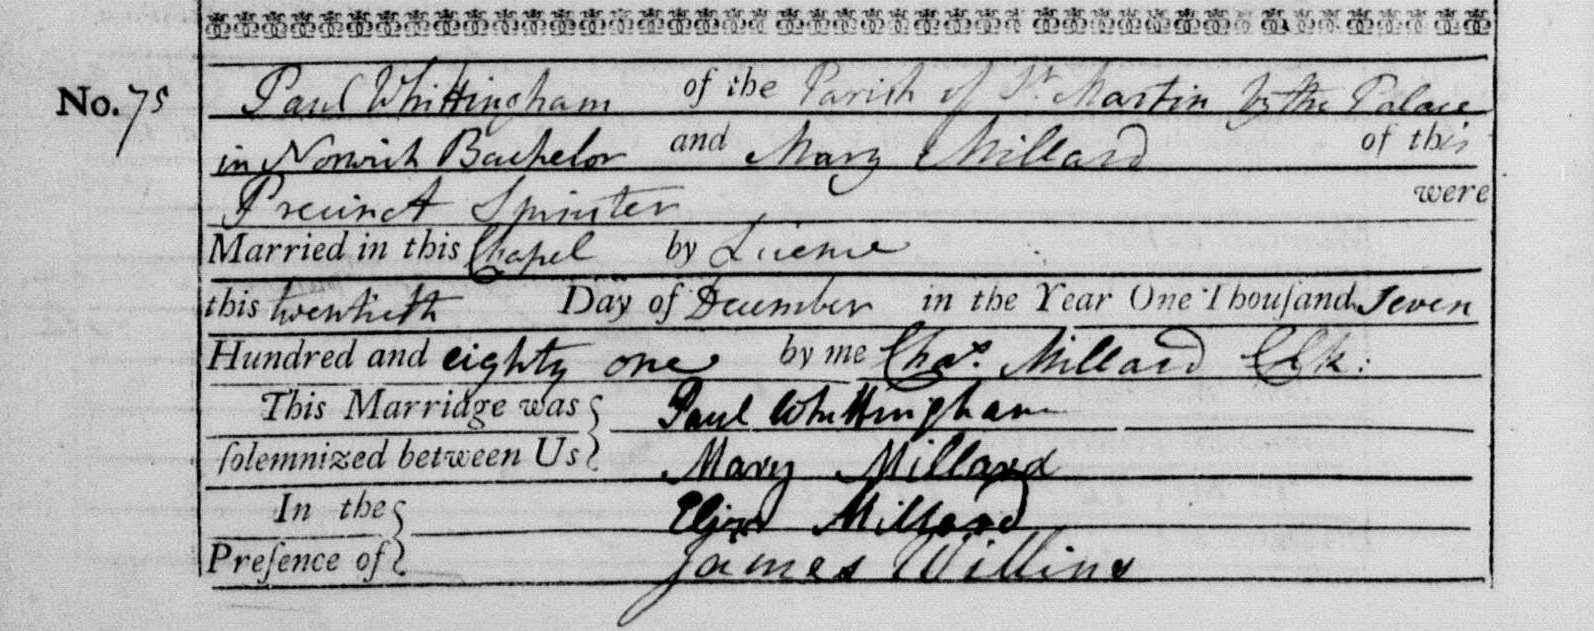 No. 75 Paul Whittingham of the Parish of St Martin by the Palace
in Norwich Bachelor and Mary Millard of this
Precinct Spinster were
Married in this Chapel by Licence
this twentieth Day of December in the Year One Thouſand Seven
Hundred and eighty one by me Chas. Millard Clk:
This Marriage was Paul Whittingham
ſolemnized between Us Mary Millard
In the Eliza Millard
Preſence of James Willins